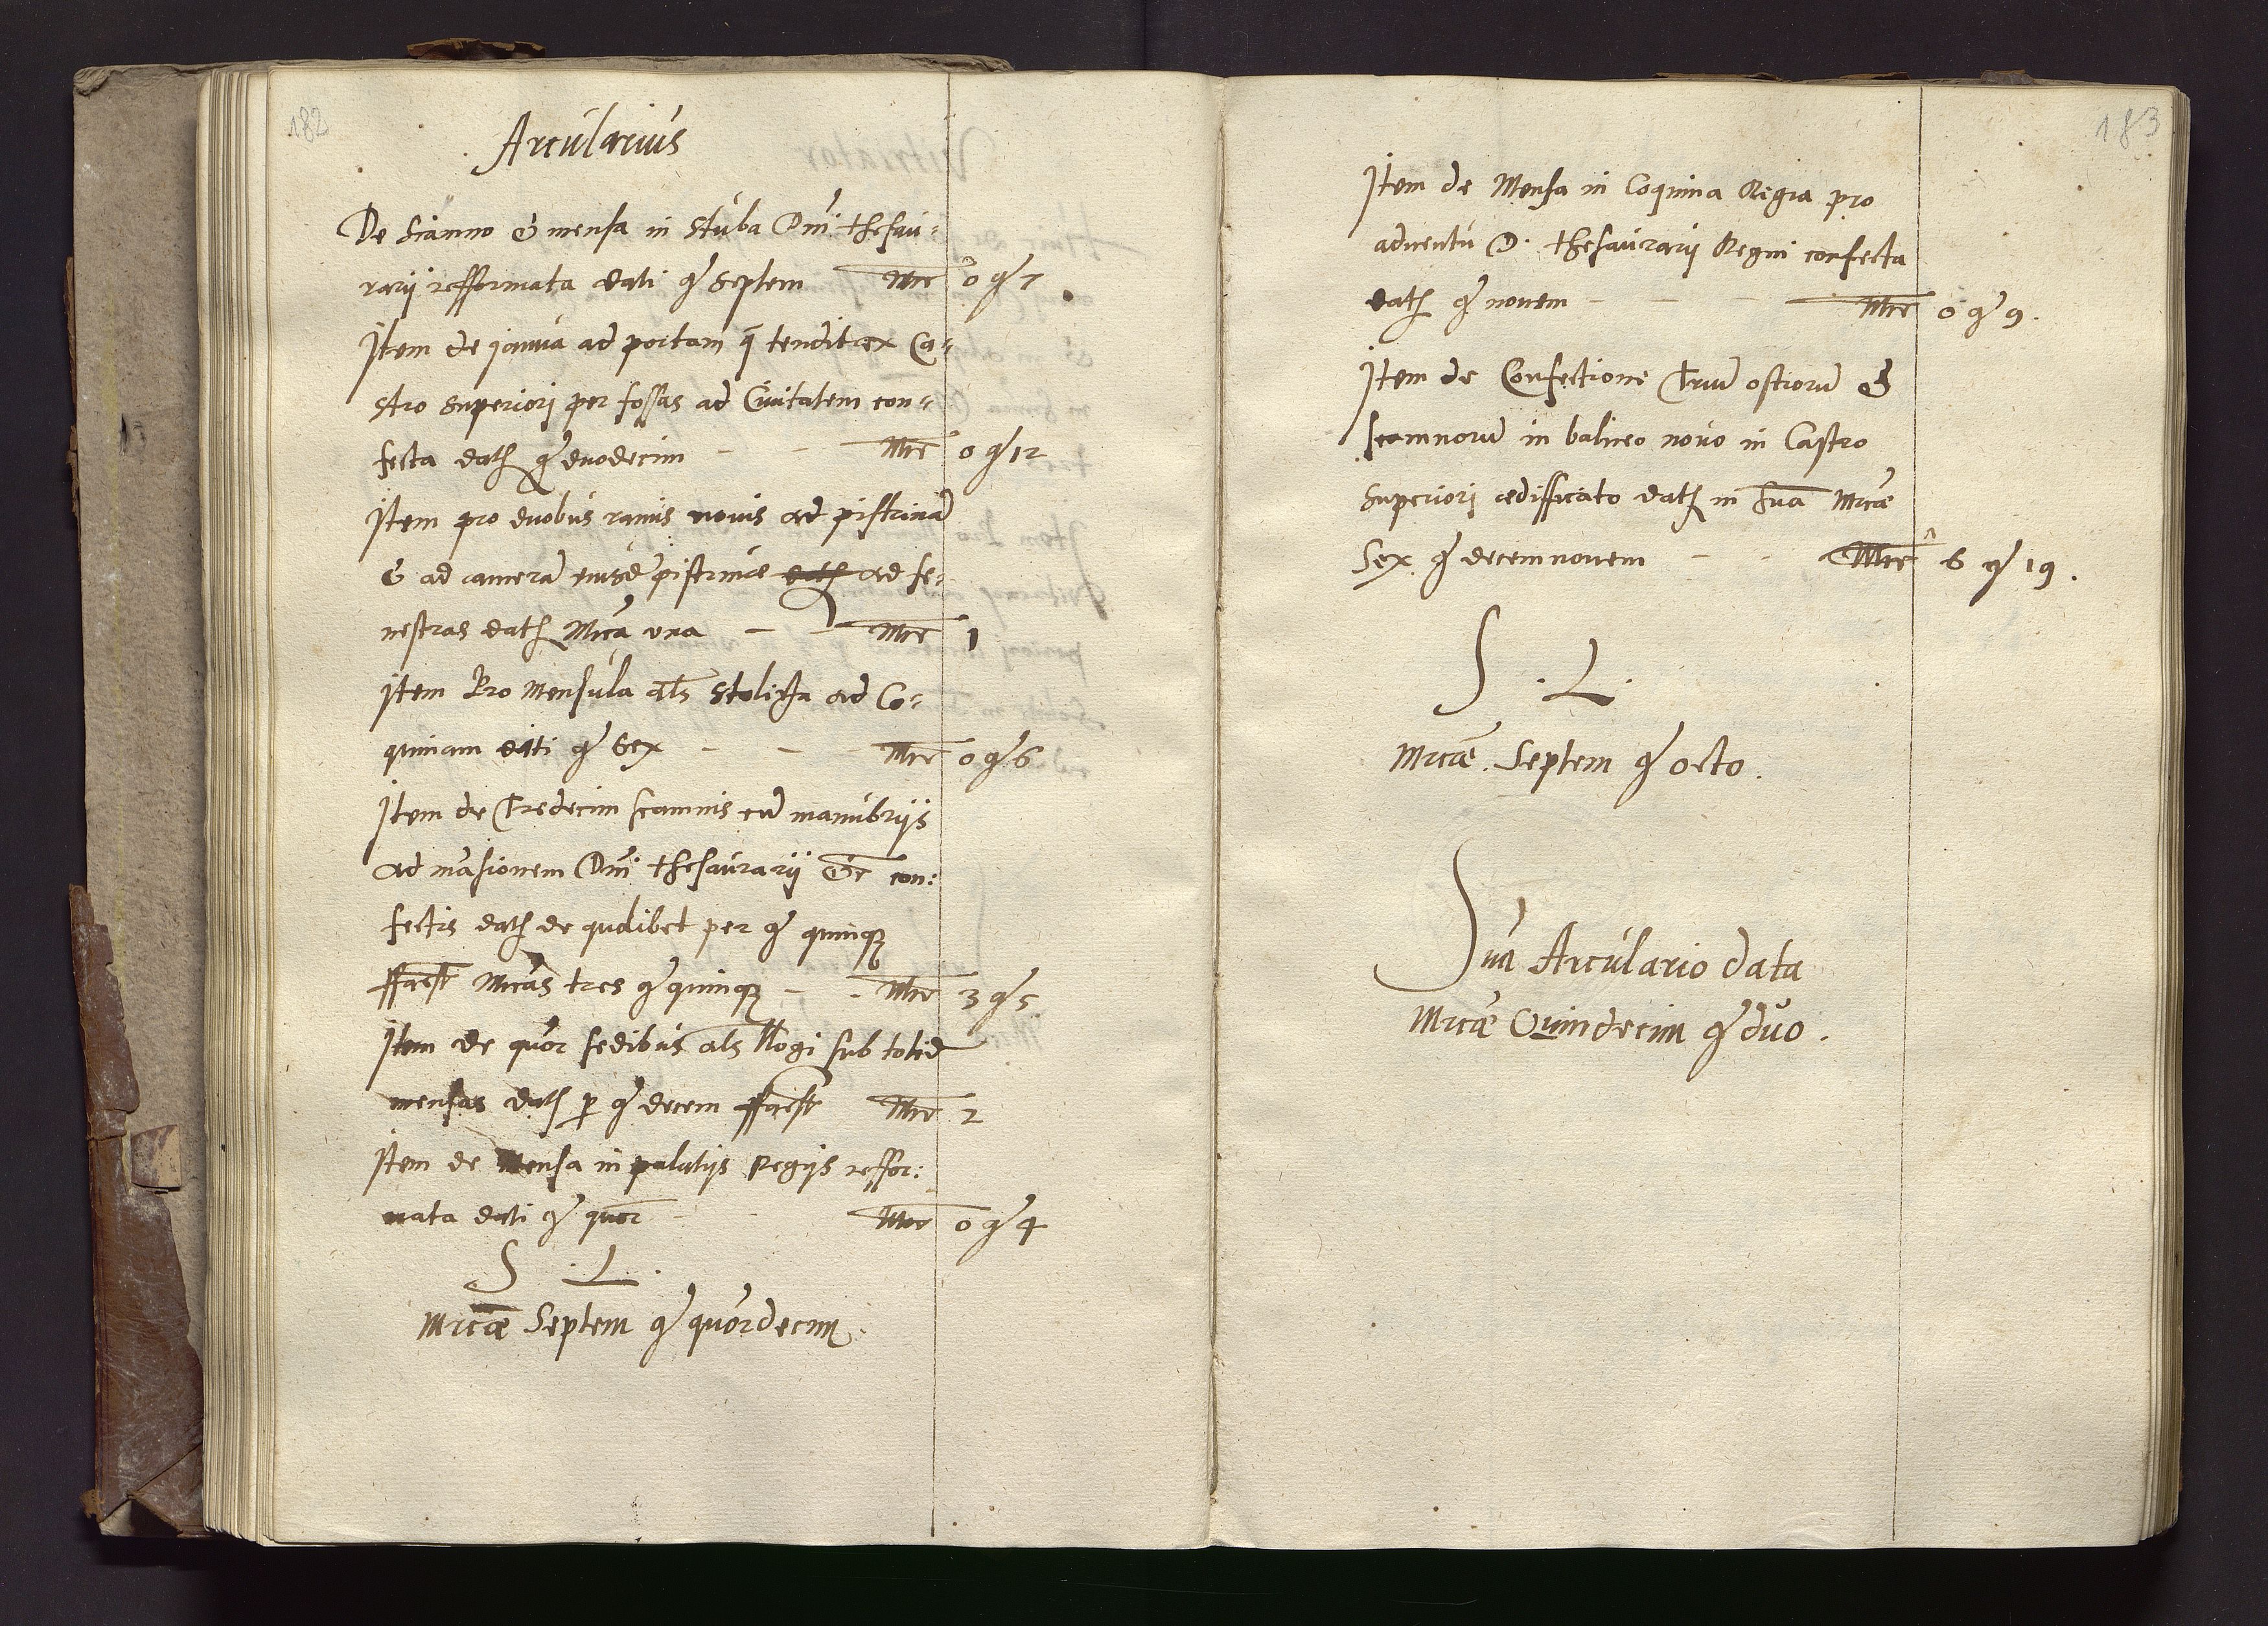 182
Arcularius
De scamno & mensa in stuba Dni thesau-
rarii refformata dati gr septem Mrc 0 gr 7
Item de janua ad portam q tendit ex Ca-
stro superiori per fossas ad Civitatem con-
fecta dati gr duodecim - - Mrc 0 gr 12
Item pro duobus ramis novis ad pistrinã
& ad camerã eiusd pistrinæ dati ad fe-
nestras dati Mrca una - - Mrc 1
Item Pro Mensula als ad Co-
quinam dati gr sex - - Mrc 0 gr 6
Item de Tredecim scamnis cũ manubriis
ad mansionem Dni thesaurarii &c con:
fectis dati de qudlibet per gr quinqz
ffacit Mrcas tres gr quinqz - - Mrc 3 gr 5
Item de quor sedibus als Nogi sub totid
mensas dati p gr decem ffacit Mrc 2
Item de Mensa in palatiis Regiis reffor:
mata dati gr quor - - Mrc 0 gr 4
S. L.
Mrcæ Septem gr quordecim.
183
Item de Mensa in Coquina Regia pro
adventu D. thesaurarii Regni confecta
dati gr novem - - Mrc 0 gr 9.
Item de Confectione Triũ ostiorũ &
scamnorũ in balneo novo in Castro
superiori ædifficato dati in Sũa Mrcæ
Sex gr decemnovem - - Mrc 6 gr 19.
S. L.
Mrcæ. Septem gr octo.
Sũa Arculario data
Mrcæ Quindecim gr duo.